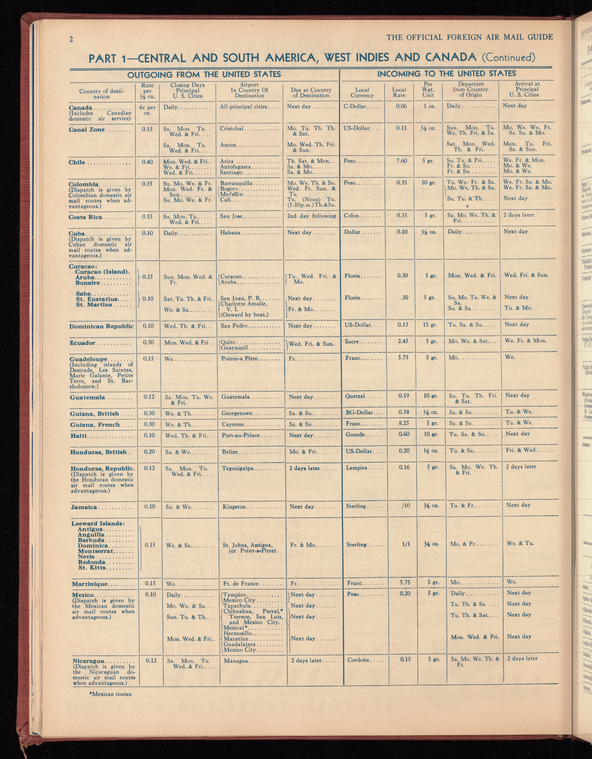 2 THE OFFICIAL FOREIGN AIR MAIL GUIDE
PART 1—CENTRAL AND SOUTH AMERICA, WEST INDIES AND CANADA (Continued)
OUTGOING FROM THE UNITED STATES INCOMING TO THE UNITED STATES
Country of desti-nation Rate per ½ oz. Closing Days Principal U. S. Cities Airport In Country Of Destination Due at Country of Destination Local Currency Local Rate Per Wgt. Unit Departure from Country of Origin Arrival at Principal U. S. Cities
Canada (Includes Canadian domestic air service) 6c per oz. Daily All principal cities Next day C-Dollar 0.06 1 oz. Daily Next day
Canal Zone 0.15 Sa. Mon. Tu. Wed. & Fri. Cristobal Mo. Tu. Th. Th. & Sat. US-Dollar 0.15 ½ oz. Sun. Mon. Tu. We. Th. Fri. & Sa. Mo. We. We. Fr. Sa. Su. & Mo.
Sa. Mon. Tu. Wed. & Fri. Ancon Mo. Wed. Th. Fri. & Sun. Sat. Mon. Wed. Th. & Fri. Mon. Tu. Fri. Sa. & Sun.
Chile 0.40 Mon. Wed. & Fri. Arica Th. Sat. & Mon. Peso 7.60 5 gr. Su. Tu. & Fri. We. Fr. & Mon.
We. & Fri. Antofagasta Sa. & Mo. Fr. & Su. Mo. & We.
Wed. & Fri. Santiago Sa. & Mo. Fr. & Sa. Mo. & We.
Colombia (Dispatch is given by Colombian domestic air mail routes when ad-vantageous.) 0.35 Su. Mo. We. & Fr. Barranquilla Mo. We. Th. & Su. Peso 0.35 10 gr. Tu. We. Fr. & Sa. We. Fr. Sa. & Mo.
Mon. Wed. Fr. & Sun. Bogota Wed. Fr. Sun. & Tu. Mo. We. Th. & Sa. We. Fr. Sa. & Mo.
Medellin
Su. Mo. We. & Fr. Cali Tu. (Noon) Tu. (5:10p.m.) Th.&Sa. Sa. Tu. & Th. Next day
Costa Rica 0.15 Sa. Mon. Tu. Wed. & Fri. San Jose 2nd day following Colon 0.35 5 gr. Sa. Mo. We. Th. & Fri. 2 days later
Cuba (Dispatch is given by Cuban domestic air mail routes when ad-vantageous.) 0.10 Daily Habana Next day Dollar 0.10 ½ oz. Daily Next day
Curacao:
Curacao (Island).
Aruba
Bonaire 0.25 Sun. Mon. Wed. & Fr. Curacao Aruba Tu. Wed. Fri. & Mo. Florin 0.30 5 gr. Mon. Wed. & Fri. Wed. Fri. & Sun.
Saba
St. Eustatius
St. Martins 0.10 Sat. Tu. Th. & Fri. San Juan, P. R. Next day Florin .30 5 gr. Su. Mo. Tu. We. & Sa. Next day
We. & Sa. Charlotte Amalie, V. I. (Onward by boat.) Fr. & Mo. Su. & Sa. Tu. & Mo.
Dominican Republic 0.10 Wed. Th. & Fri. San Pedro Next day US-Dollar 0.13 15 gr. Tu. Sa. & Su. Next day
Ecuador 0.30 Mon. Wed. & Fri Quito Guayaquil Wed. Fri. & Sun. Sucre 2.45 5 gr. Mo. We. & Sat. We. Fr. & Mon.
Guadeloupe (Including islands of Desirade, Les Saintes, Marie Galante, Petite Terre, and St. Bar-tholomew.) 0.15 We. Pointe-a Pitre Fr. Franc 5.75 5 gr. Mo. We.
Guatemala 0.12 Sa. Mon. Tu. We. & Fri. Guatemala Next day Quetzal 0.19 10 gr. Sa. Tu. Th. Fri. & Sat. Next day
Guiana, British 0.30 We. & Th. Georgetown Sa. & Su. BG-Dollar 0.58 ½ oz. Sa. & Su. Tu. & We.
Guiana, French 0.30 We. & Th. Cayenne Sa. & Su. Franc 8.25 5 gr. Sa. & Su. Tu. & We.
Haiti 0.10 Wed. Th. & Fri. Port-au-Prince Next day Gourde 0.60 10 gr. Tu. Sa. & Su. Next day
Honduras, British 0.20 Sa. & We. Belize Mo. & Fri. US-Dollar 0.20 ½ oz. Tu. & Sa. Fri. & Wed.
Honduras, Republic. (Dispatch is given by the Honduran domestic air mail routes when advantageous.) 0.12 Sa. Mon. Tu. Wed. & Fri. Tegucigalpa 2 days later Lempira 0.16 5 gr. Sa. Mo. We. Th. & Fri. 2 days later
Jamaica 0.10 Su. & We. Kingston Next day Sterling /10 ½ oz. Tu. & Fr. Next day
Leeward Islands:
Antigua
Anguilla
Barbuda
Dominica
Montserrat
Nevis
Redonda
St. Kitts 0.15 We. & Sa. St. Johns, Antigua, (or Point-a-Pitre) Fr. & Mo. Sterling 1/1 ½ oz. Mo. & Fr. We. & Tu.
Martinique 0.15 We. Ft. de France Fr. Franc 5.75 5 gr. Mo. We.
Mexico (Dispatch is given by the Mexican domestic air mail routes when advantageous.) 0.10 Daily Tampico Mexico City Next day Peso 0.20 5 gr. Daily Next day
Mo. We. & Sa. Tapachula Next day Tu. Th. & Sa. Next day
Sun. Tu. & Th. Chihuahua, Parral,* Torreon, San Luis, and Mexico City. Next day Tu. Th. & Sat. Next day
Mon. Wed. & Fri. Mexical* Hermosillo Mazatlan Guadalajara Mexico City Next day Mon. Wed. & Fri. Next day
Nicaragua (Dispatch is given by the Nicaraguan do-mestic air mail routes when advantageous.) 0.12 Sa. Mon. Tu. Wed. & Fri. Managua 2 days later Cordoba 0.15 5 gr. Sa. Mo. We. Th. & Fr. 2 days later
*Mexican routes